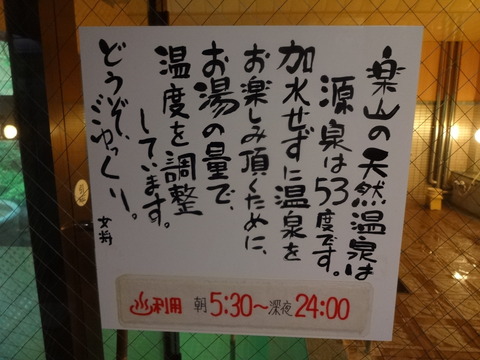 楽山の天然温泉は
源泉は53度です。
加水せずに温泉を
お楽しみ頂くために、
お湯の量で、
温度を調整
しています。
どうぞ、ごゆっくり。
女将
♨利用 朝5:30～深夜24:00